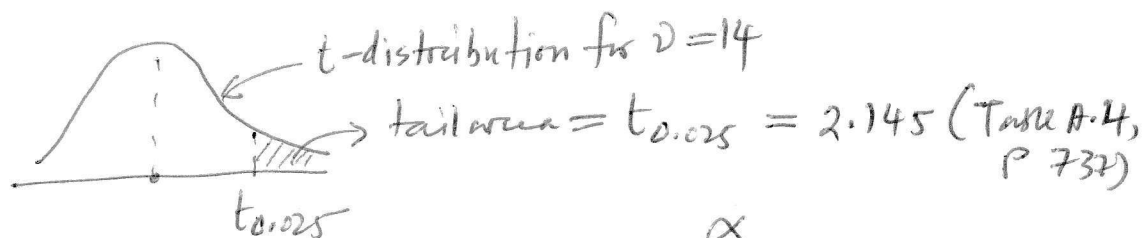 t-distribution for ν = 14
tail area = t0.025 = 2.145 (Table A.4,
P 737)
t0.025
α